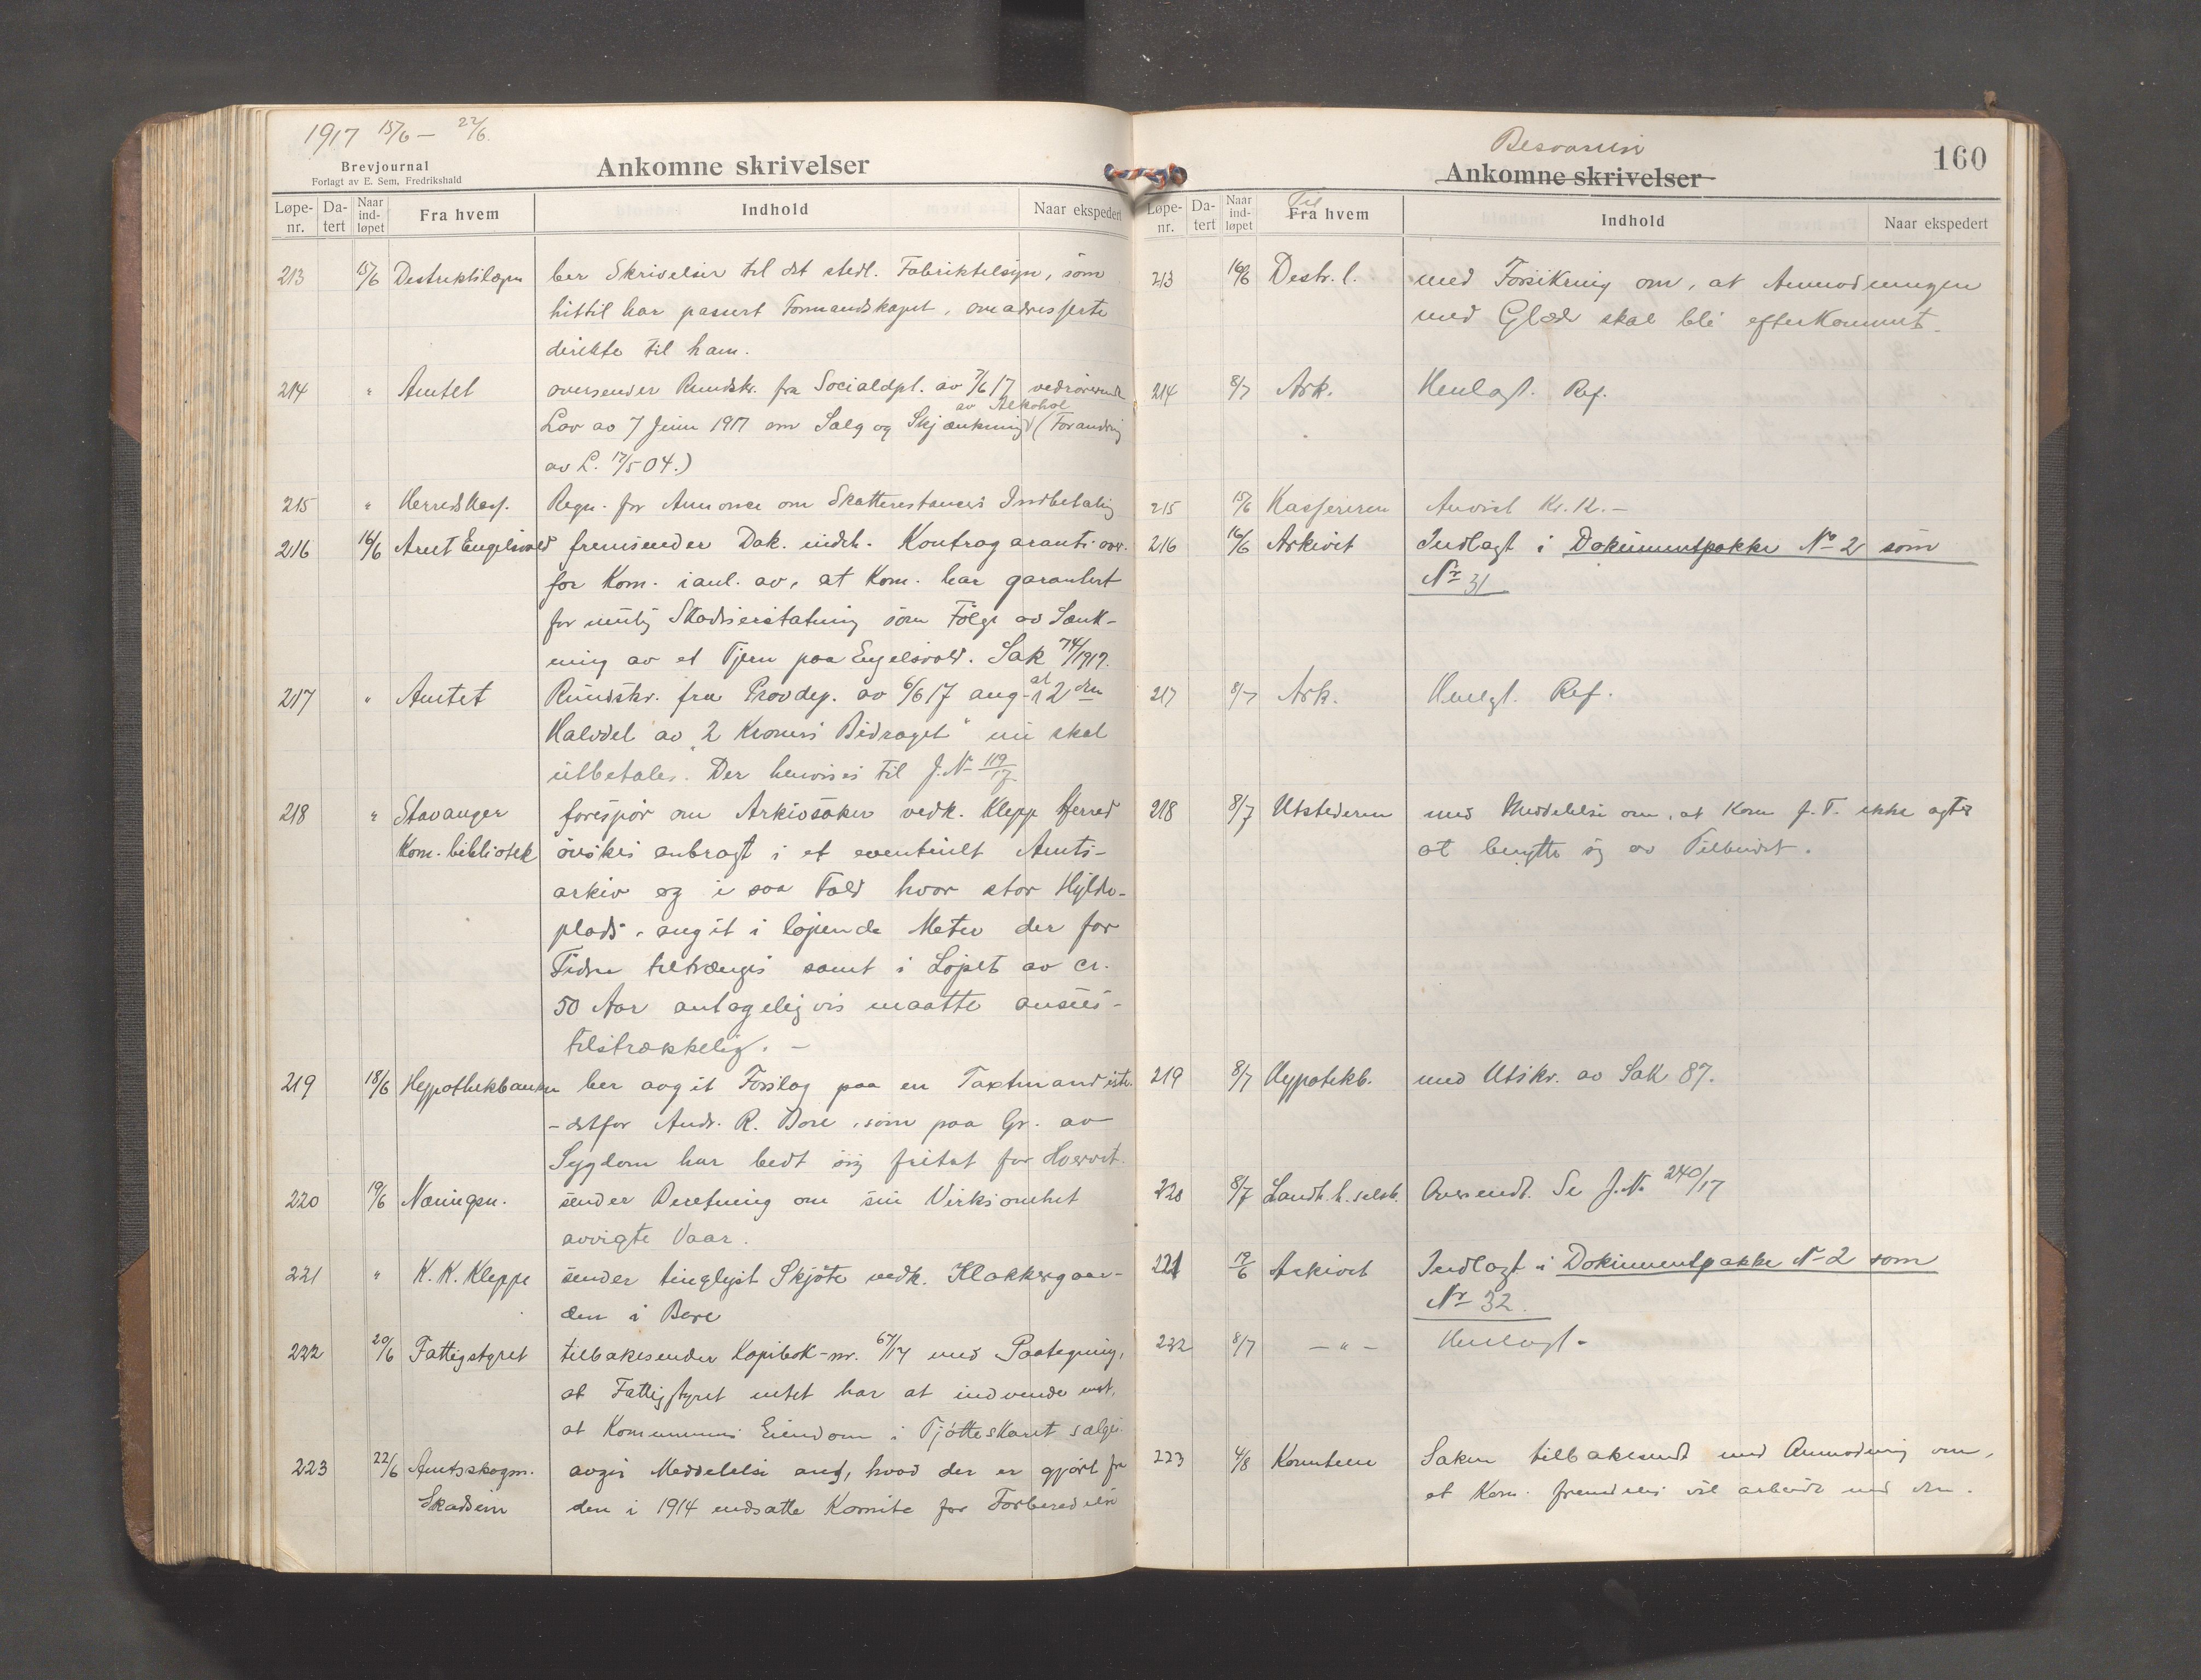 1917 15/6 – 22/6.
Brevjournal
Forlagt av E. Sem, Fredrikshald
Ankomne skrivelser
Løpe-nr. Da-tert Naar ind-løpet Fra hvem Indhold Naar ekspedert
213 15/6 Destriktslægen ber Skrivelser til det stedl. Fabriktilsyn, som
hittil har passert Formandskapet, omadresserte
direkte til ham.
214 " Amtet oversender Rundskr. fra Socialdpt. av 7/6 17 vedrörende
Lov av 7 Juni 1917 om Salg og Skjænkning av Alkohol (Forandring
av L. 17/5 04.)
215 " Herredskas. Regn. for Annonce om Skatterestancers Indbetaling
216 16/6 Arnt Engelsvold fremsender Dok. indeh. Kontragaranti over.
for Kom. i anl. av, at Kom. har garantert
for mulig Skadeserstatning som Følge av Sænk-
ning av et Tjern paa Engelsvold. Sak 74/1917.
217 " Amtet Rundskr. fra Provdep. av 6/6 17 ang. at 2den
Halvdel av "2 Kroners Bidraget" nu skal
utbetales. Der henvises til J.N. 119/17
218 " Stavanger forespör om Arkivsaker vedk. Klepp Herred
Kom. bibliotek önskes anbragt i et eventuelt Amts-
arkiv og i saa Fald hvor stor Hylde-
plads, angit i løpende Meter der for
Tiden tiltrænges samt i Löpet av cr.
50 Aar antageligvis maatte ansees
tilstrækkelig. –
219 18/6 Hypothekbanken ber avgit Forslag paa en Taxtmand iste-
-detfor Andr. R. Bore, som paa Gr. av
Sygdom har bedt sig fritat for Hvervet.
220 19/6 Næringsn. sender Beretning om sin Virksomhet
avvigte Vaar.
221 " K. K. Kleppe sender tinglyst Skjöte vedk. Klokkergaar-
den i Bore
222 20/6 Fattigstyret tilbakesender Kopibok-nr. 67/17 med Paategning,
at Fattigstyret intet har at indvende mot,
at Kommunens Eiendom i Tjötteskaret sælges.
223 22/6 Amtsskogm. avgir Meddelelse ang, hvad der er gjört fra
Skadsem den i 1914 nedsatte Komite for Forberedelse
160
Besvarelse
Ankomne skrivelser
Løpe-nr. Da-tert Naar ind-løpet Til Fra hvem Indhold Naar ekspedert
213 16/6 Destr. l. med Forsikring om, at Anmodningen
med Glæde skal bli efterkommet.
214 8/7 Ark. Henlagt. Ref.
215 15/6 Kassereren Anvist Kr. 12.–
216 16/6 Arkivet Indlagt i Dokumentpakke No 2 som
Nr 31
217 8/7 Ark. Henlagt. Ref.
218 8/7 Utstederen med Meddelelse om, at Kom f. T. ikke agter
at benytte sig av Tilbudet.
219 8/7 Hypotekb. med Utskr. av Sak 87.
220 8/7 Landh. h. selsk. Oversendt. Se J.N. 240/17
221 19/6 Arkivet Indlagt i Dokumentpakke N 2 som
Nr 32.
222 8/7 – " – Henlagt.
223 4/8 Komiteen Saken tilbakesendt med Anmodning om,
at Kom. fremdeles vil arbeide med den.